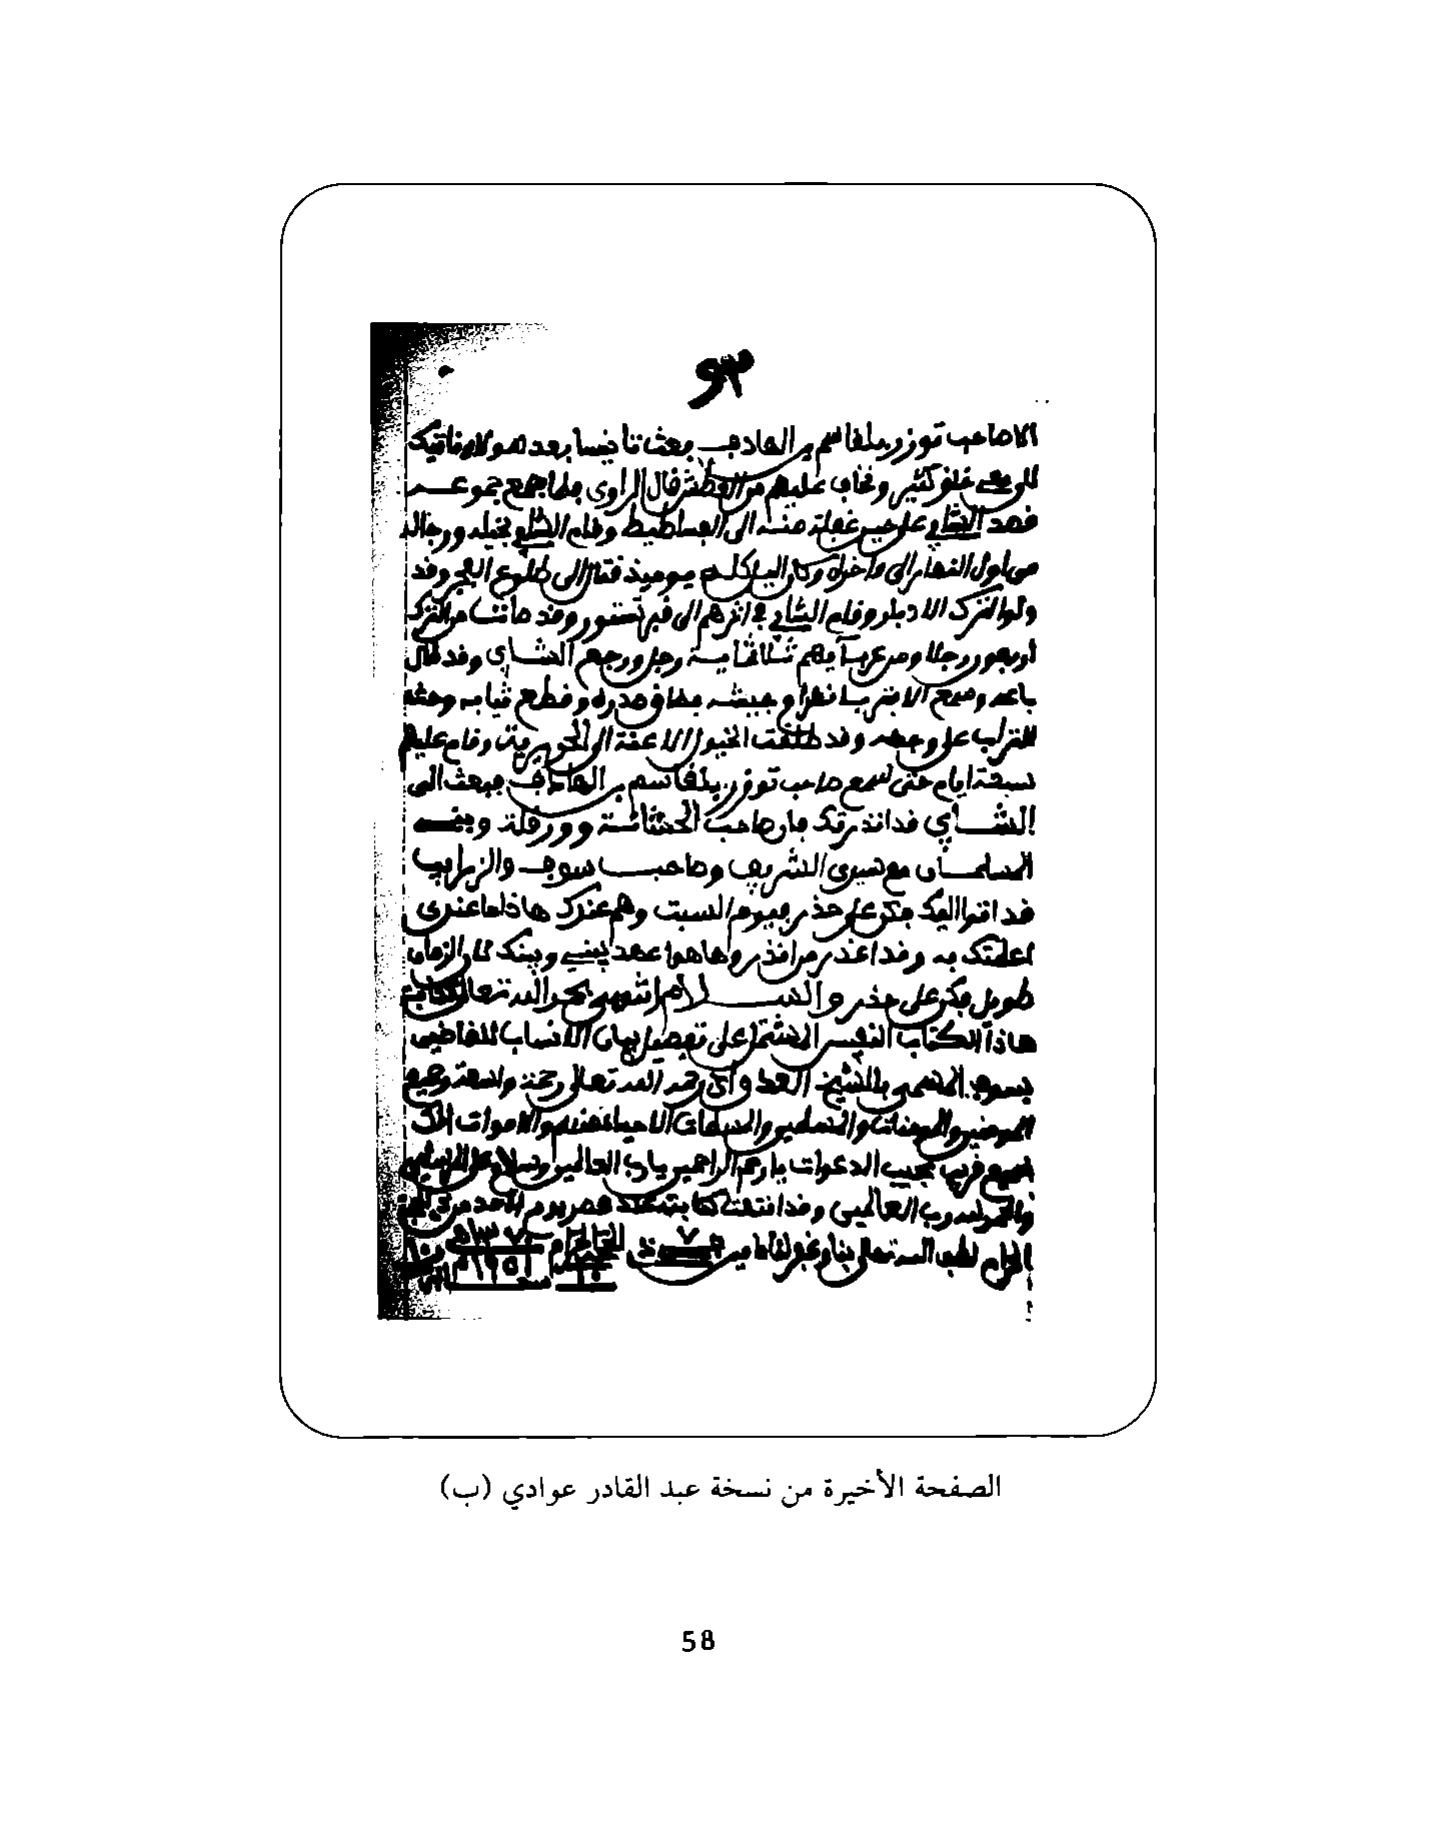 ٩٣
الا صاحب توزر بلقاسم بن الهادف بعث
خلق كثير وخاف عليهم من القطش قال الراوي فلما جمع جموعه
قصد الشابي على حين غفلة منه الى الفساطيط وقام الشابي بخيله ورجاله
من اول النهار الى واخره وكان الليل كله يوميذ قتال الى طلوع الفجر وقد
ولوا الترك الادبار وقام الشابي في اثرهم الى قبر تستور وقد مات من الترك
اربعون رجلا ومن عربانهم ثلاثماية رجل ورجع الشابي وقد
وجيشه فضاق صدره وقطع ثيابه وحثى
التراب على وجهه وقد طلقت الخيول الاعنة الى وقام عليهم
سبعة ايام حتى سمع صاحب توزر بلقاسم بن الهادف فبعث الى
الشابي قد انذرتك بان صاحب وورقلة وبنه
المسلمان مع سيدي الشريف وصاحب سوف والزراب
قد اتوا اليك فكن على حذر فيوم السبت وهم عندك هاذا ما عندي
اعلمتك به وقد اعذر من انذر وهاهوا عهد بيني وبينك كان الزمان
طويل فكن على حذر والسلام انتهى بحمد الله تعالى كتاب
هاذا الكتاب النفيس المشتمل على تفصيل بيان الانساب للقاطن
بسوف المسمى بالشيخ العدواني رحمه الله تعالى رحمة واسعة وجميع
المومنين والمومنات والمسلمين والمسلمات الاحياء منهم والاموات انك
سميع قريب مجيب الدعوات يا ارحم الراحمين يا رب العالمين وسلام على المرسلين
والحمد لله رب العالمين وقد انتهت كتابته عند عصر يوم الاحد من
الحرام لطف الله تعالى بنا ٧
١٣٧١هـ
١٩٥١م
الصفحة الأخيرة من نسخة عبد القادر عوادي (ب)
58